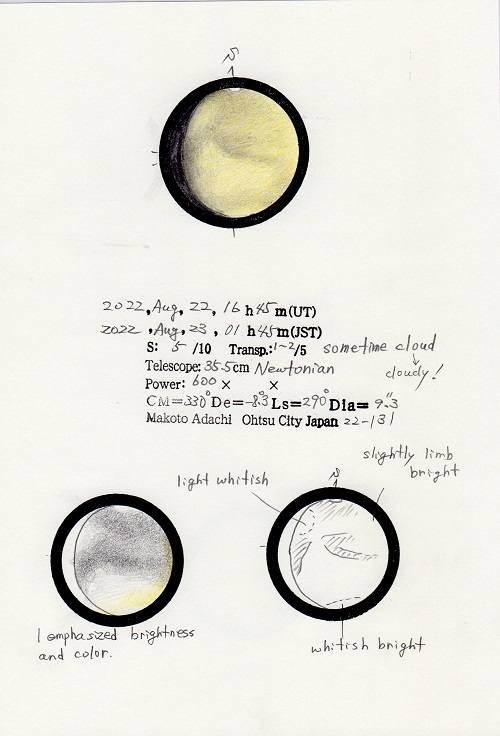 S
2022, Aug, 22, 16 h 45 m (UT)
2022, Aug, 23, 01 h 45 m (JST)
S: 5 /10 Transp.: 1~2/5 sometime cloud
cloudy!
Telescope: 35.5cm Newtonian
Power: 600 × ×
CM=330° De=-8.3° Ls=290° Dia= 9.3"
Makoto Adachi Ohtsu City Japan 22-131
slightly limb
bright
light whitish
S
I emphasized brightness
and color.
whitish bright